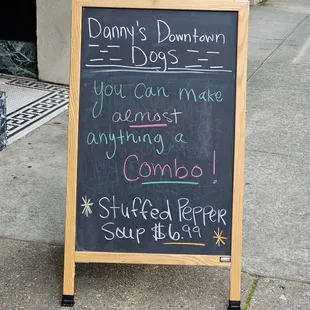 Danny's Downtown
Dogs
You Can make
almost
anything a
Combo!
Stuffed Pepper
Soup $6.99